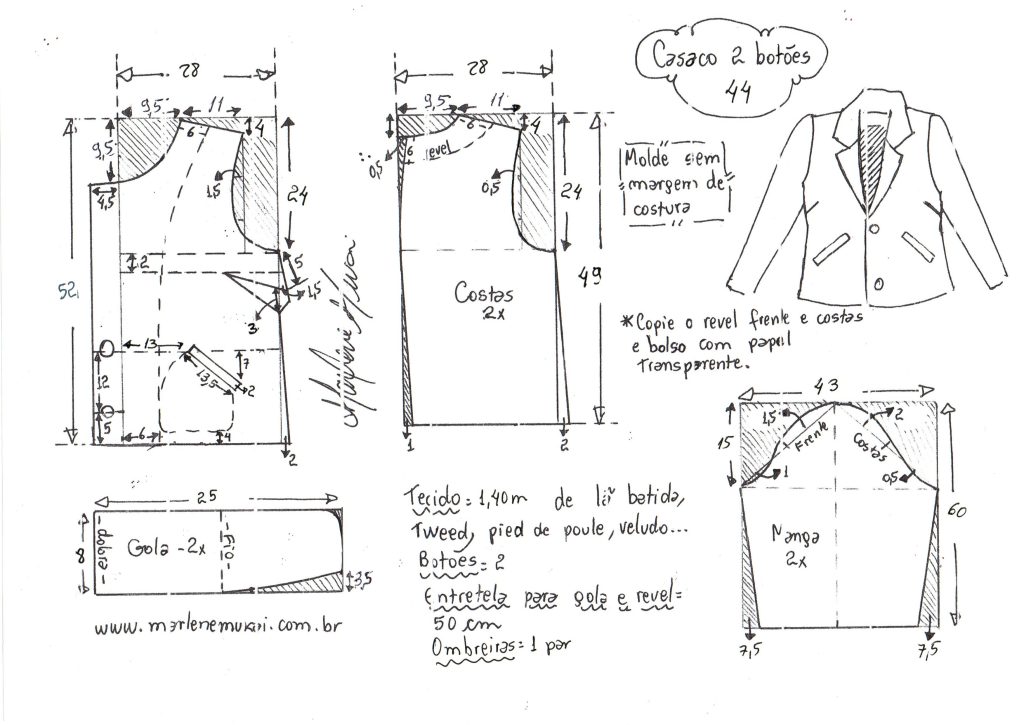 Casaco 2 botões
44
Molde sem
margem de
costura
28
9,5
11
4
6
9,5
4,5
1,5
24
2
5
1,5
3
52
13
13,5
7
2
12
5
6
4
2
28
9,5
11
4
6
revel
0,5
0,5
24
49
Costas
2x
1
2
*Copie o revel frente e costas
e bolso com papel
transparente.
43
15
1,5
2
Frente
Costas
1
0,5
60
Manga
2x
7,5
7,5
25
8
dobra
Gola - 2x
Fio
3,5
www.marlenemukai.com.br
Tecido = 1,40m de lã batida,
Tweed, pied de poule, veludo...
Botões = 2
Entretela para gola e revel =
50 cm
Ombreiras = 1 par